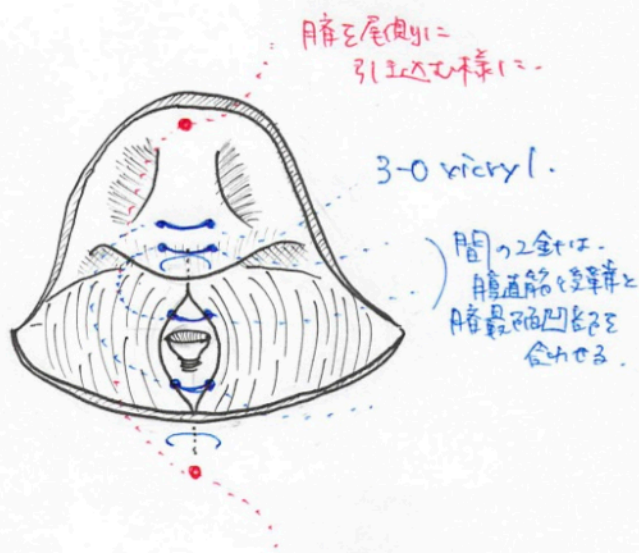 臍を尾側に
引き込む様に.
3-0 vicryl.
間の2針は.
腹直筋と
臍最凹部を
合わせる.